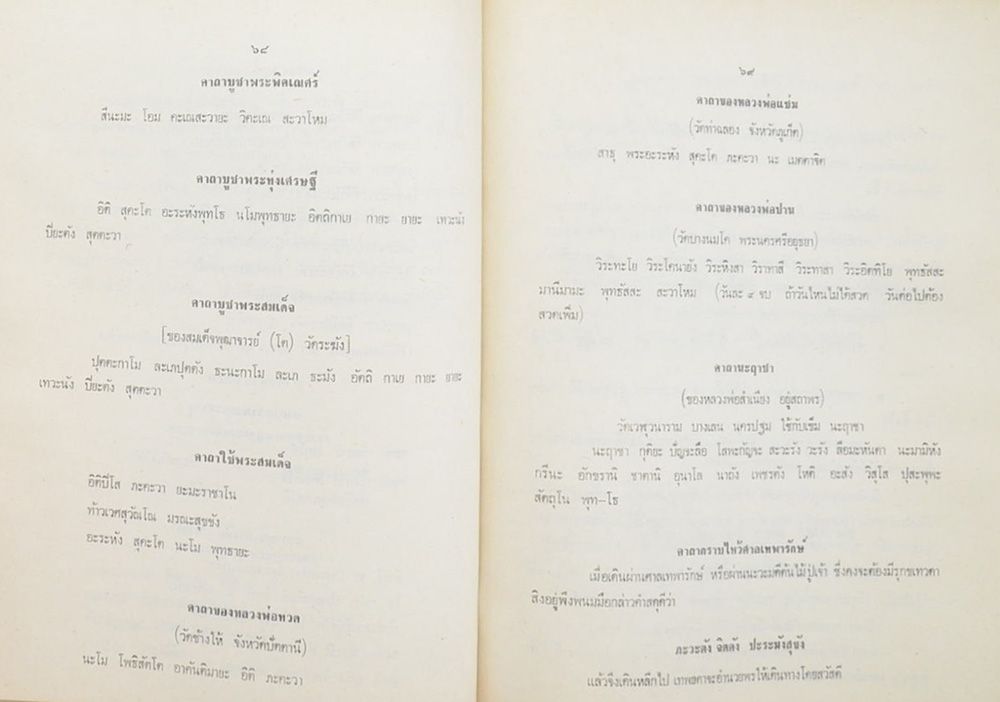 ๖๘
คาถาบูชาพระพิฆเณศร์
สีนะมะ โอม คะเณสะวายะ วิคะเณ สะวาโหม
คาถาบูชาพระหุ่งเศรษฐี
อิติ สุคะโต อะระหังพุทโธ นโมพุทธายะ อิตถิกาเย กายะ ยายะ เทวะนัง
ปิยะตัง สุตตะวา
คาถาบูชาพระสมเด็จ
[ของสมเด็จพุฒาจารย์ (โต) วัดระฆัง]
ปุตตะกาโม ละเภปุตตัง ธะนะกาโม ละเภ ธะนัง อัตถิ กาเย กายะ ยายะ
เทวะนัง ปิยะตัง สุตตะวา
คาถาใช้พระสมเด็จ
อิติปิโส ภะคะวา ยะมะราชาโน
ท้าวเวศสุวัณโณ มรณะสุขขัง
อะระหัง สุคะโต นะโม พุทธายะ
คาถาของหลวงพ่อทวด
(วัดช้างให้ จังหวัดปัตตานี)
นะโม โพธิสัตโต อาคันติมายะ อิติ ภะคะวา
๖๙
คาถาของหลวงพ่อแช่ม
(วัดท่าฉลอง จังหวัดภูเก็ต)
สาธุ พระอะระหัง สุคะโต ภะคะวา นะ เมตตาจิต
คาถาของหลวงพ่อปาน
(วัดบางนมโค พระนครศรีอยุธยา)
วิระทะโย วิระโคนายัง วิระหิงสา วิราทาสี วิระทาสา วิระอิตถิโย พุทธัสสะ
มานีมามะ พุทธัสสะ สะวาโหม (วันละ ๙ จบ ถ้าวันไหนไม่ได้สวด วันต่อไปต้อง
สวดเพิ่ม)
คาถานะฤาชา
(ของหลวงพ่อสำเนียง อยู่สถาพร)
วัดเวฬุวนาราม บางเลน นครปฐม ใช้กับเข็ม นะฤาชา
นะฤาชา กุติยะ ปัญจะลือ โสทะกัญจะ สะวะรัง วะรัง ลือมะหันตา นะมามิหัง
กรีนะ อักขรานิ ชาตานิ อุนาโล นาถัง เพชรตัง โหติ อะสัง วิสุโส ปุสะพุพะ
สัตถุโน พุท–โธ
คาถากราบไหว้ศาลเทพารักษ์
เมื่อเดินผ่านศาลเทพารักษ์ หรือผ่านนะวะมดีต้นไม้ปู่เจ้า ซึ่งคงจะต้องมีรุกขเทวดา
สิงอยู่พึงพนมมือกล่าวคำสดุดีว่า
ภะวะตัง จิตตัง ปะระมังสุขัง
แล้วจึงเดินหลีกไป เทพยดาจะอำนวยพรให้เดินทางโดยสวัสดี